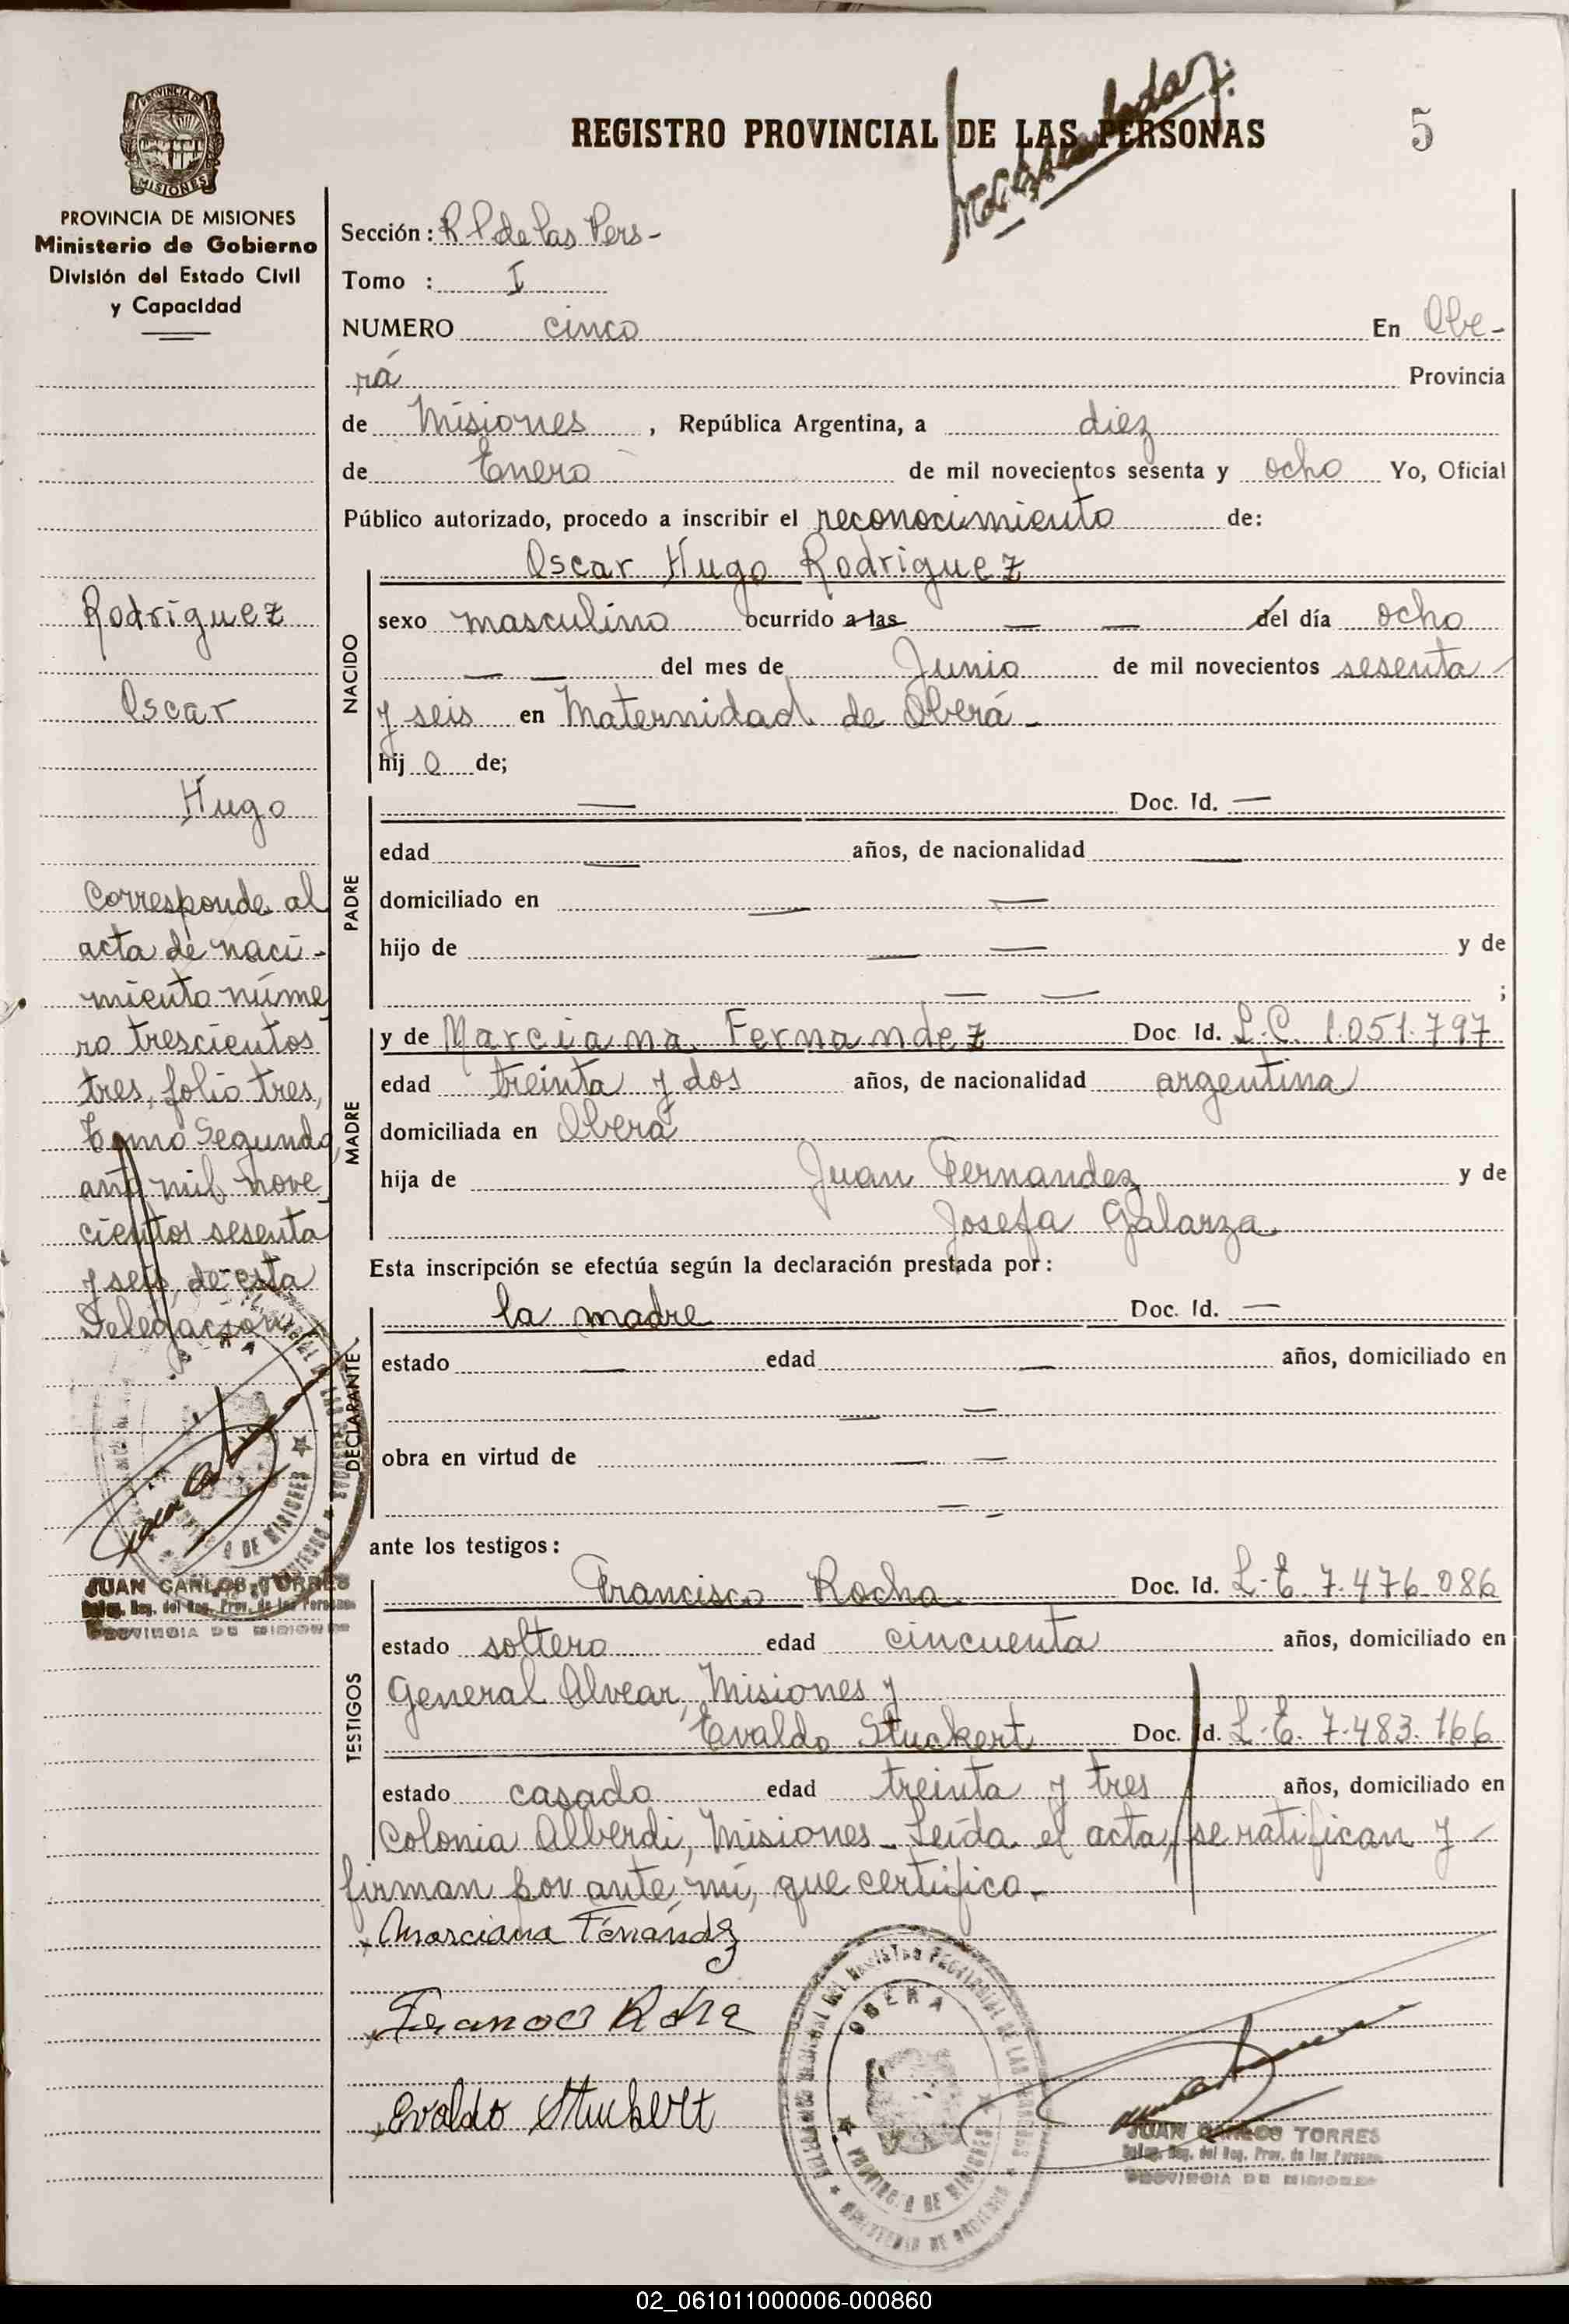 REGISTRO PROVINCIAL DE LAS PERSONAS
5
PROVINCIA DE MISIONES
Ministerio de Gobierno
División del Estado Civil
y Capacidad
Rodríguez
Oscar
Hugo
Corresponde al
acta de naci-
miento núme
ro trescientos
tres, folio tres,
tomo Segundo,
año mil nove
cientos sesenta
y seis, de esta
Delegación
JUAN CARLOS TORRES
PROVINCIA DE MISIONES
Sección: R P de las Pers-
Tomo : I
NUMERO cinco En Obe-
rá Provincia
de Misiones, República Argentina, a diez
de Enero de mil novecientos sesenta y ocho Yo, Oficial
Público autorizado, procedo a inscribir el reconocimiento de:
NACIDO
Oscar Hugo Rodriguez
sexo masculino ocurrido a las — — del día ocho
— — del mes de Junio de mil novecientos sesenta
y seis en Maternidad de Oberá -
hij o de;
PADRE
— Doc. Id. —
edad — años, de nacionalidad —
domiciliado en — —
hijo de — — y de
— — ;
MADRE
y de Marciana Fernandez Doc. Id. L.C. 1.051.797
edad treinta y dos años, de nacionalidad argentina
domiciliada en Oberá
hija de Juan Fernandez y de
Josefa Galarza
Esta inscripción se efectúa según la declaración prestada por:
DECLARANTE
la madre Doc. Id. —
estado — edad — años, domiciliado en
— —
obra en virtud de — —
— -
ante los testigos:
TESTIGOS
Francisco Rocha Doc. Id. L.E. 7.476.086
estado soltero edad cincuenta años, domiciliado en
General Alvear, Misiones y
Evaldo Stuckert Doc. Id. L.E. 7.483.166
estado casado edad treinta y tres años, domiciliado en
Colonia Alberdi, Misiones - Leída el acta, se ratifican y
firman por ante mí, que certifico.-
Marciana Fernández
Evaldo Stuckert
OBERA
PROVINCIA DE MISIONES
JUAN CARLOS TORRES
Deleg. Reg. del Reg. Prov. de las Personas
PROVINCIA DE MISIONES
02_061011000006-000860